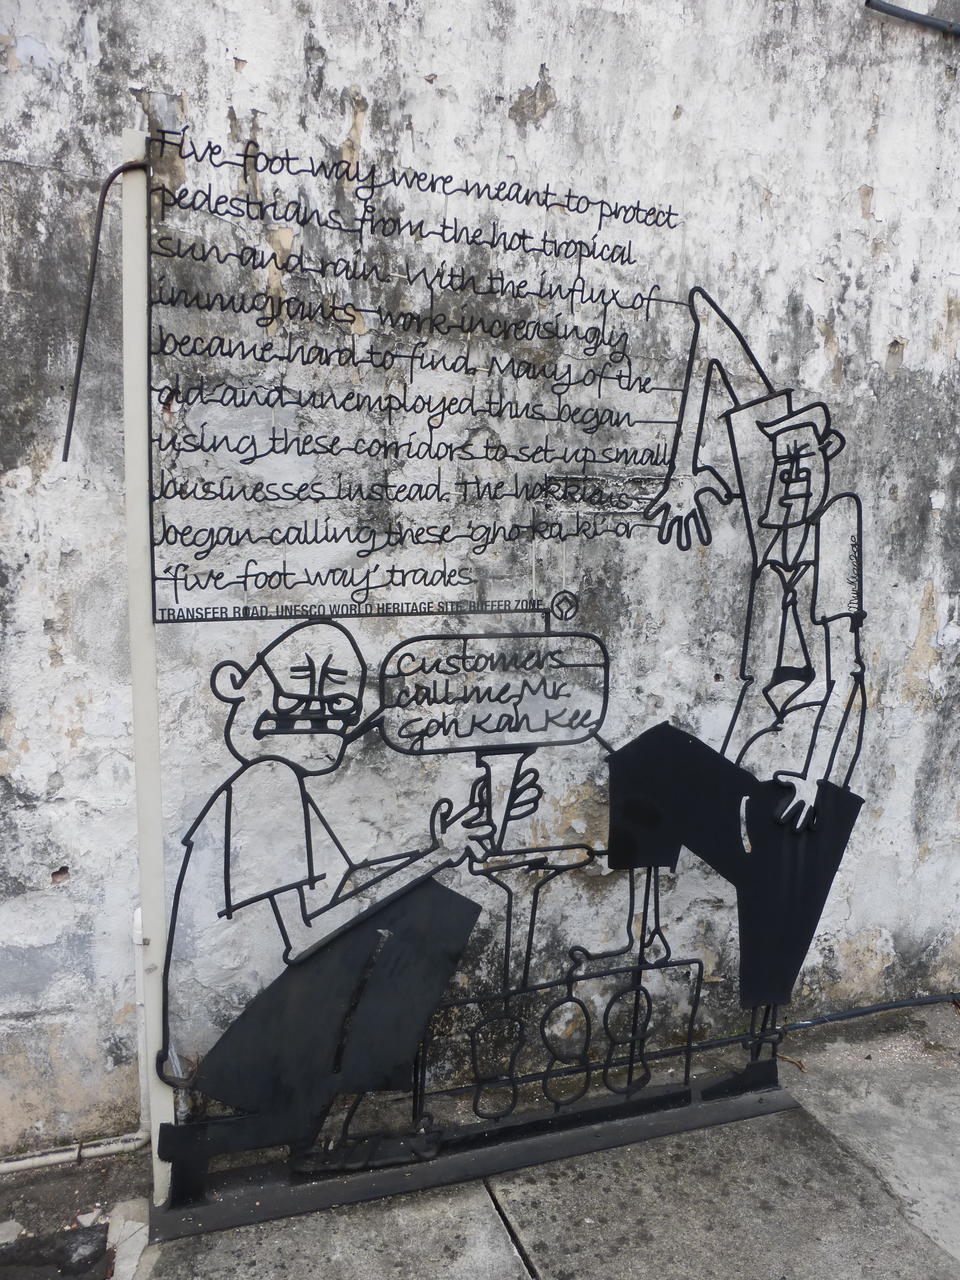 Five foot way were meant to protect
pedestrians from the hot tropical
sun and rain. With the influx of
immigrants work increasingly
became hard to find. Many of the
old and unemployed thus began
using these corridors to set up small
businesses instead. The hokkiens
began calling these 'gho ka ki' or
'five foot way' trades.
TRANSFER ROAD, UNESCO WORLD HERITAGE SITE BUFFER ZONE
Customers
call me Mr.
Goh Kah Kee